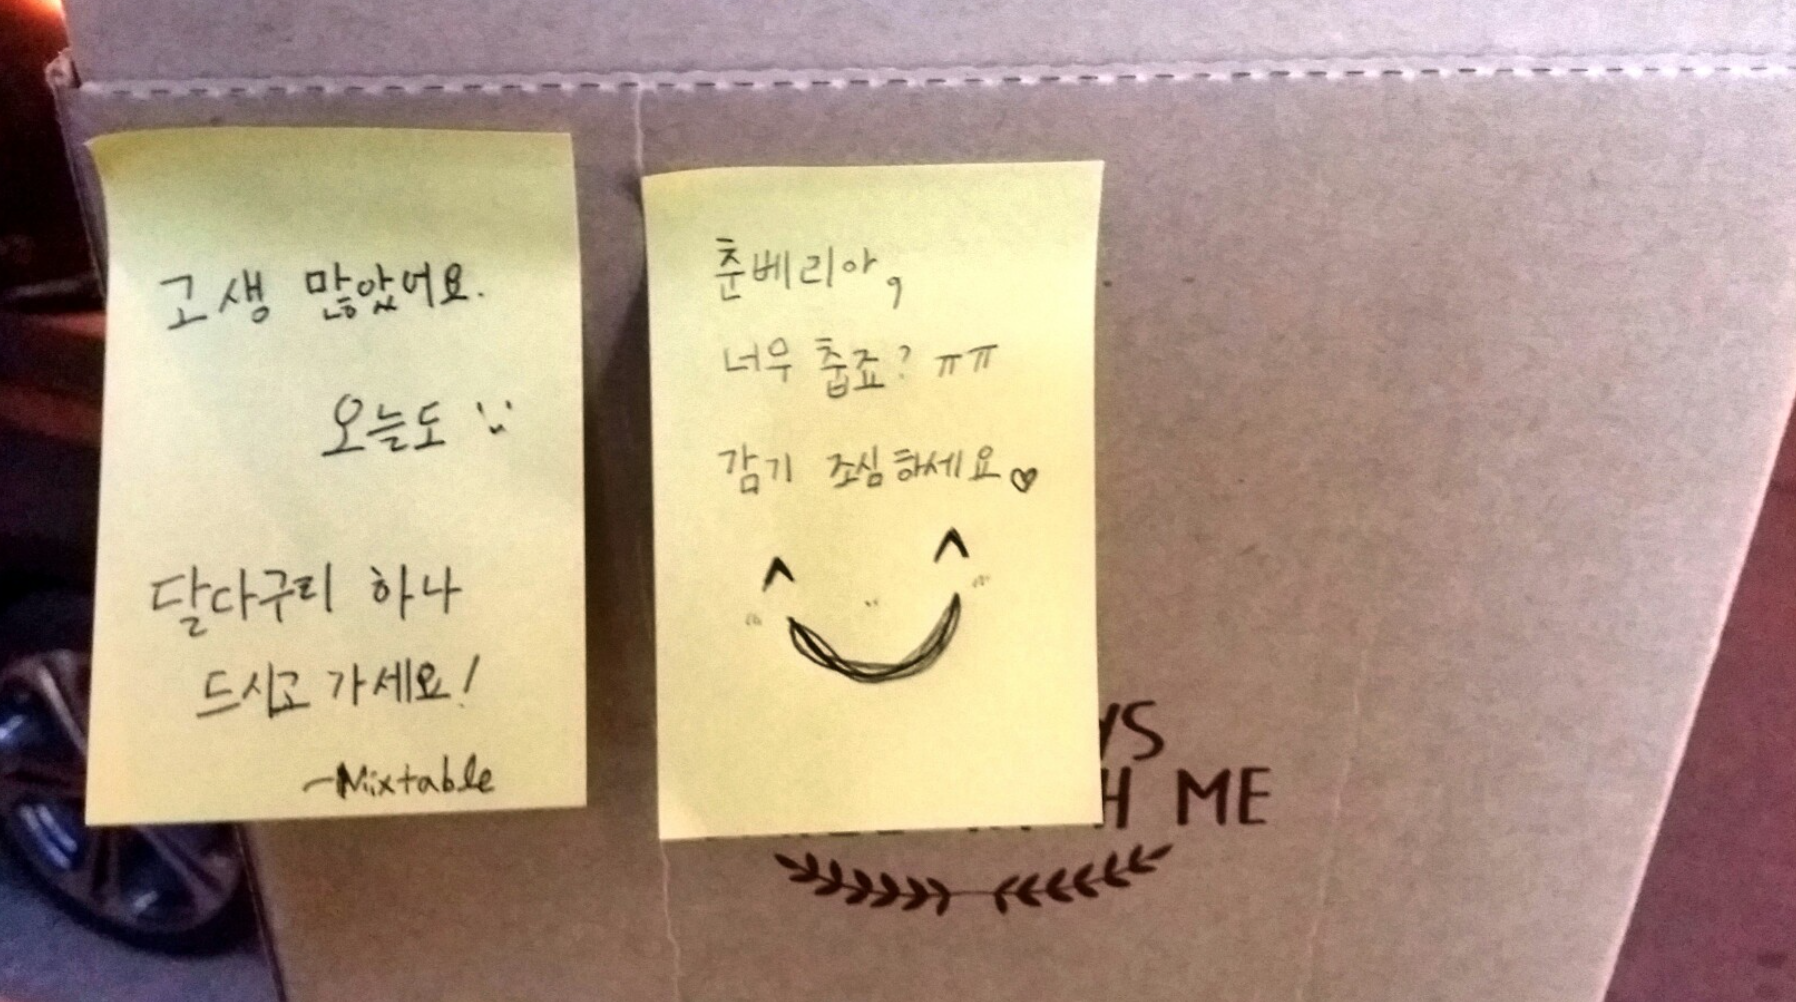 고생 많았어요.
오늘도
달다구리 하나
드시고 가세요!
-Mixtable
춘베리아,
너우 춥죠? ㅠㅠ
감기 조심하세요♡
YS
H ME